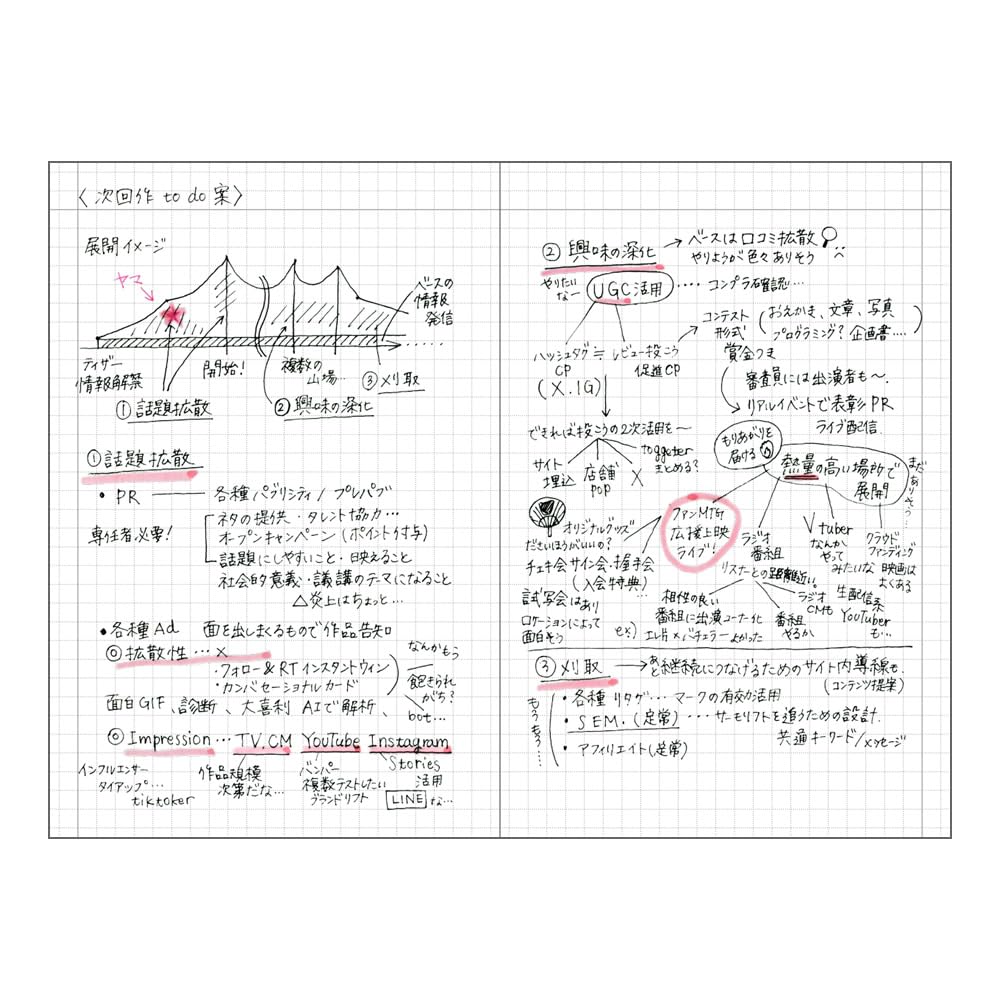 〈次回作 to do 案〉
展開イメージ
ヤマ
ベースの
情報
発信
ティザー
情報解禁
開始!
複数の
山場…
③メリ取
①話題拡散
②興味の深化
①話題拡散
• PR ── 各種パブリシティ / プレパブ
専任者必要!
ネタの提供・タレント協力…
オープンキャンペーン(ポイント付与)
話題にしやすいこと・映えること
社会的意義・議論のテーマになること
△炎上はちょっと…
• 各種Ad 面を出しまくるもので作品告知
◎拡散性…×
・フォロー&RTインスタントウィン
・カンバセーショナルカード
なんかもう
飽きられ
がち?
面白GIF、診断、大喜利 AIで解析、
bot…
◎Impression… TV.CM YouTube Instagram
インフルエンサー
タイアップ…
tiktoker
作品規模
次第だな…
バンパー
複数テストしたい
ブランドリフト
Stories
活用
LINE な…
②興味の深化
→ベースは口コミ拡散
やりようが色々ありそう
やりたい
なー
UGC活用 ‥‥ コンプラ確認…
コンテスト
形式
(おえかき、文章、写真
プログラミング? 企画書‥‥)
賞金つき
審査員には出演者も〜。
→リアルイベントで表彰PR
ライブ配信
ハッシュタグ≒レビュー投こう
CP
促進CP
(X.IG)
できれば投こうの2次活用を〜
サイト
埋込
店舗
POP
X
toggeter
まとめる?
もりあがりを
届ける
熱量の高い場所で
展開
まだありそう…
オリジナルグッズ
ださいほうがいいの?
チェキ会サイン会・握手会
(入会特典)
試写会はあり
ロケーションによって
面白そう
ファンMTG
応援上映
ライブ!
ラジオ
番組
リスナーとの距離近い。
相性の良い
番組に出演コーナー化
ex) エレ片×バチェラーよかった
ラジオ
CMも
番組
やるか
Vtuber
なんか
やって
みたいな
生配信系
YouTuber
も…
クラウド
ファンディング
映画は
よくある
③メリ取
→あと継続につなげるためのサイト内導線も.
(コンテンツ提案)
もうもう…
・各種リタゲ… マークの有効活用
・SEM.(定常)…サーモリフトを追うための設計.
共通キーワード/メッセージ
・アフィリエイト(定常)